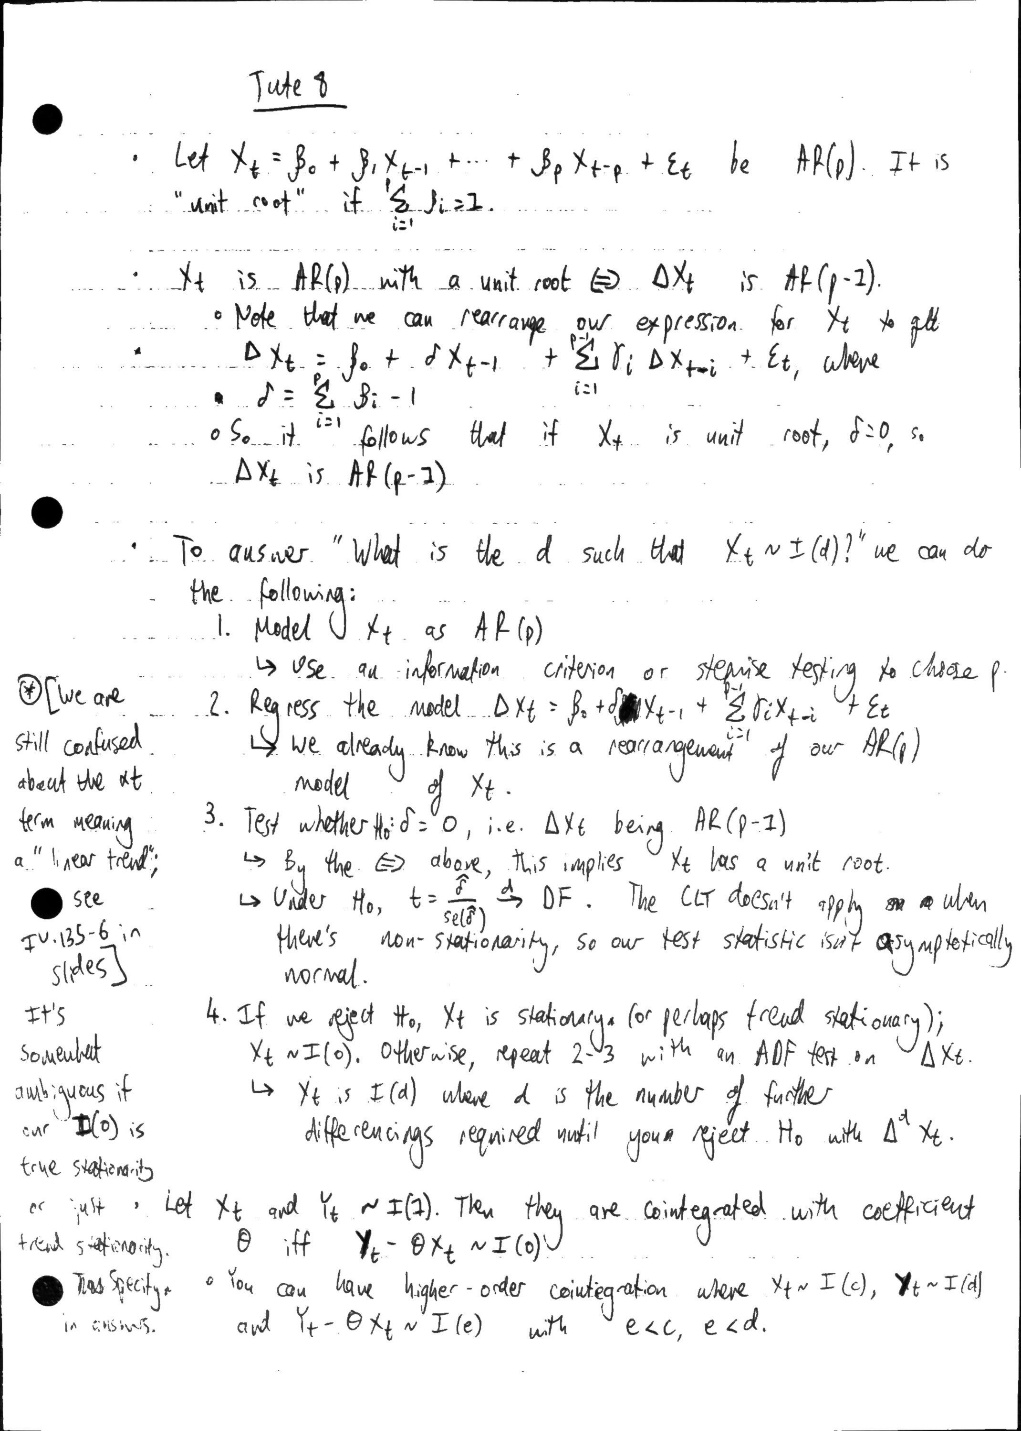 Tute 8
• Let X_t = β_0 + β_1 X_{t-1} + ... + β_p X_{t-p} + ε_t be AR(p). It is
"unit root" if Σ_{i=1}^{p} β_i = 1.
• X_t is AR(p) with a unit root ⇔ ΔX_t is AR(p-1).
∘ Note that we can rearrange our expression for X_t to get
• ΔX_t = β_0 + δX_{t-1} + Σ_{i=1}^{p-1} γ_i ΔX_{t-i} + ε_t, where
• δ = Σ_{i=1}^{p} β_i - 1
∘ So it follows that if X_t is unit root, δ=0, so
ΔX_t is AR(p-1)
• To answer "What is the d such that X_t ~ I(d)?" we can do
the following:
1. Model X_t as AR(p)
↳ Use an information criterion or stepwise testing to choose p.
2. Regress the model ΔX_t = β_0 + δX_{t-1} + Σ_{i=1}^{p-1} γ_i X_{t-i} + ε_t
↳ We already know this is a rearrangement of our AR(p)
model of X_t.
3. Test whether H_0: δ = 0, i.e. ΔX_t being AR(p-1)
↳ By the ⇔ above, this implies X_t has a unit root.
↳ Under H_0, t = δ̂/se(δ̂) →^d DF. The CLT doesn't apply when
there's non-stationarity, so our test statistic isn't asymptotically
normal.
4. If we reject H_0, X_t is stationary (or perhaps trend stationary);
X_t ~ I(0). Otherwise, repeat 2-3 with an ADF test on ΔX_t.
↳ X_t is I(d) where d is the number of further
differencings required until you reject H_0 with Δ^d X_t.
• Let X_t and Y_t ~ I(1). Then they are cointegrated with coefficient
θ iff Y_t - θX_t ~ I(0)
∘ You can have higher-order cointegration where X_t ~ I(c), Y_t ~ I(d)
and Y_t - θX_t ~ I(e) with e<c, e<d.
⊛ [We are
still confused
about the αt
term meaning
a "linear trend";
see
IV.135-6 in
slides]
It's
somewhat
ambiguous if
our I(0) is
true stationarity
or just
trend stationarity.
Specify
in answers.